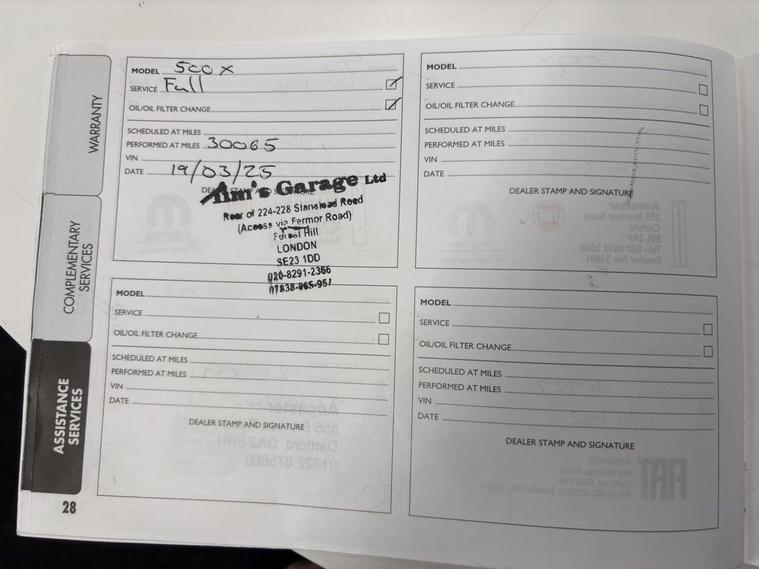 WARRANTY
COMPLEMENTARY
SERVICES
ASSISTANCE
SERVICES
28
MODEL 500X
SERVICE Full
OIL/OIL FILTER CHANGE
SCHEDULED AT MILES
PERFORMED AT MILES 30065
VIN
DATE 19/03/25
DEALER STAMP AND SIGNATURE
Jim's Garage Ltd
Rear of 224-228 Stanstead Road
(Access via Fermor Road)
Forest Hill
LONDON
SE23 1DD
020-8291-2366
MODEL
SERVICE
OIL/OIL FILTER CHANGE
SCHEDULED AT MILES
PERFORMED AT MILES
VIN
DATE
DEALER STAMP AND SIGNATURE
MODEL
SERVICE
OIL/OIL FILTER CHANGE
SCHEDULED AT MILES
PERFORMED AT MILES
VIN
DATE
DEALER STAMP AND SIGNATURE
MODEL
SERVICE
OIL/OIL FILTER CHANGE
SCHEDULED AT MILES
PERFORMED AT MILES
VIN
DATE
DEALER STAMP AND SIGNATURE